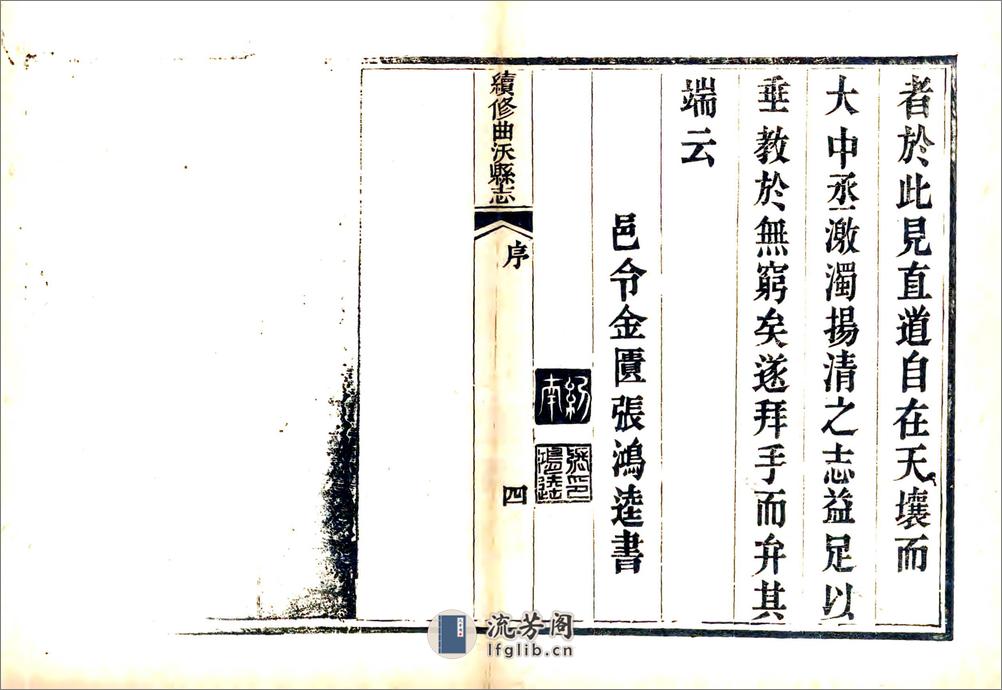 者於此見直道自在天壤而
大中丞激濁揚清之志益足以
垂教於無窮矣遂拜手而弁其
端云
邑令金匱張鴻逵書
續修曲沃縣志
序
四
流芳阁
lfglib.cn